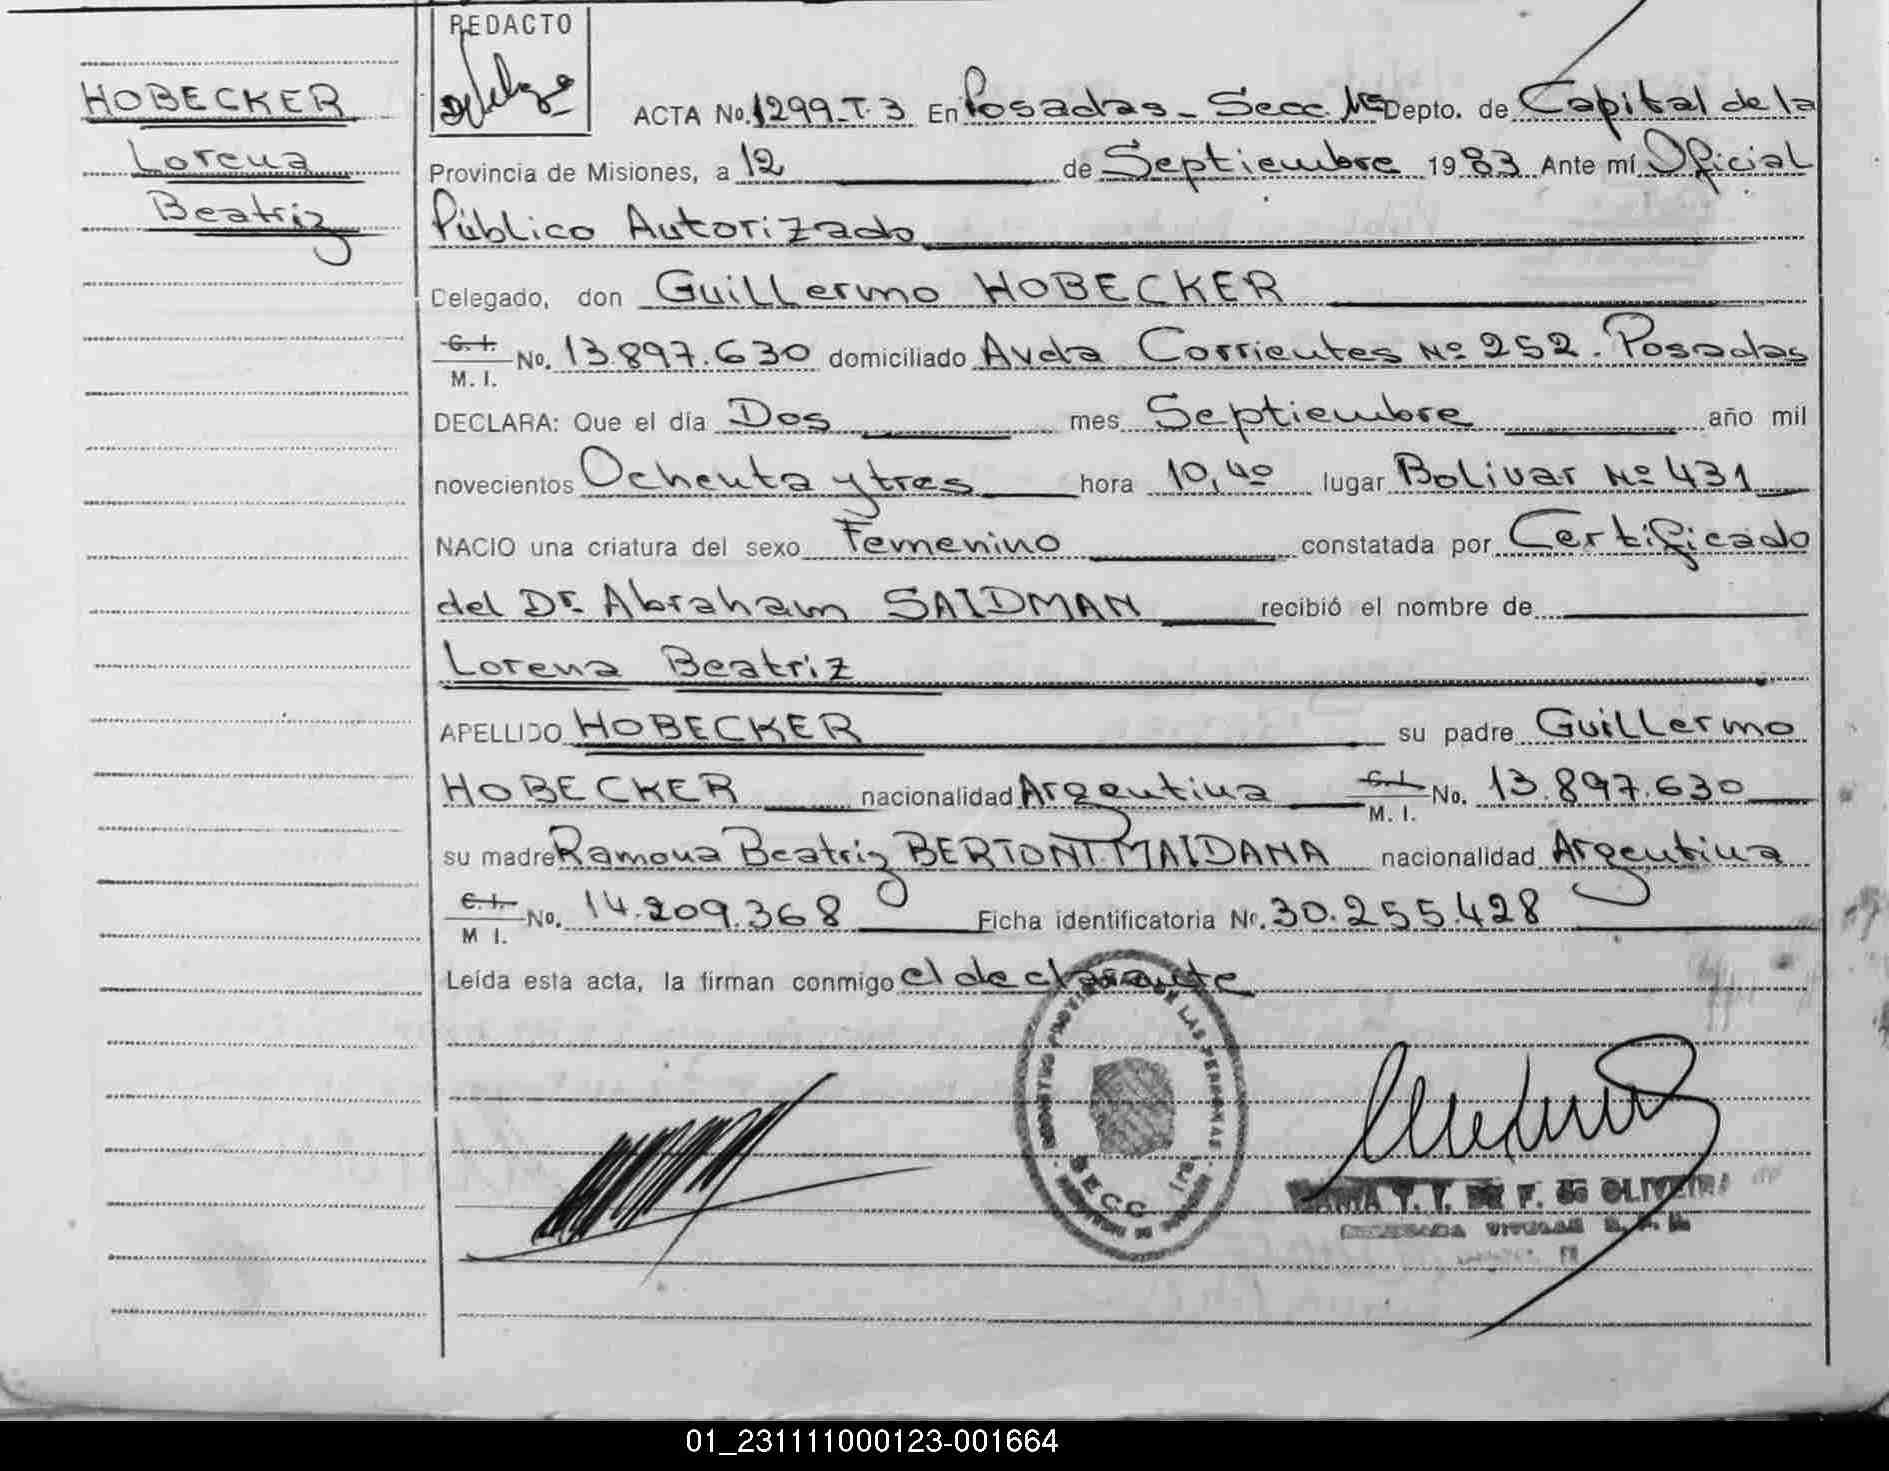 REDACTO
HOBECKER
Lorena
Beatriz
ACTA No. 1299-T.3 En Posadas - Secc. 1ª Depto. de Capital de la
Provincia de Misiones, a 12 de Septiembre 1983 Ante mí Oficial
Público Autorizado
Delegado, don Guillermo HOBECKER
C. I. M. I. No. 13.897.630 domiciliado Avda Corrientes Nº 252. Posadas
DECLARA: Que el día Dos mes Septiembre año mil
novecientos Ochenta y tres hora 10,40 lugar Bolivar Nº 431
NACIO una criatura del sexo Femenino constatada por Certificado
del Dr. Abraham SAIDMAN recibió el nombre de
Lorena Beatriz
APELLIDO HOBECKER su padre Guillermo
HOBECKER nacionalidad Argentina C. I. M. I. No. 13.897.630
su madre Ramona Beatriz BERTONI MAIDANA nacionalidad Argentina
C. I. M I. No. 14.209.368 Ficha identificatoria Nº. 30.255.428
Leída esta acta, la firman conmigo el declarante
DE LAS PERSONAS
SECC. 1ra
DE F. de OLIVEIRA
01_231111000123-001664